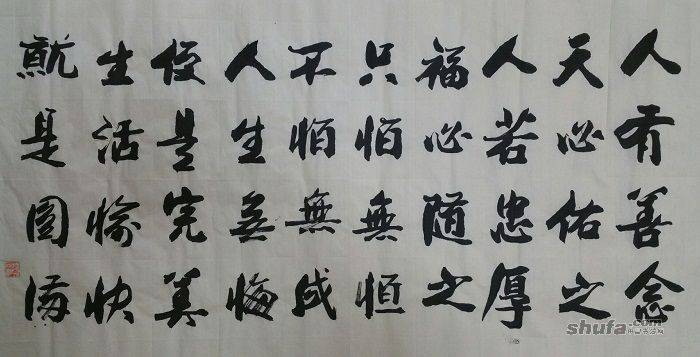 人有善念
天必佑之
人若忠厚
福必随之
只怕無恒
不怕無成
人生無悔
便是完美
生活愉快
就是圓滿
shufa.com